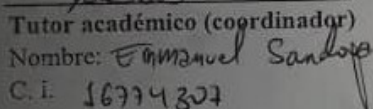 Tutor académico (coordinador)
Nombre: Emmanuel Sandoya
C. i. 16774307